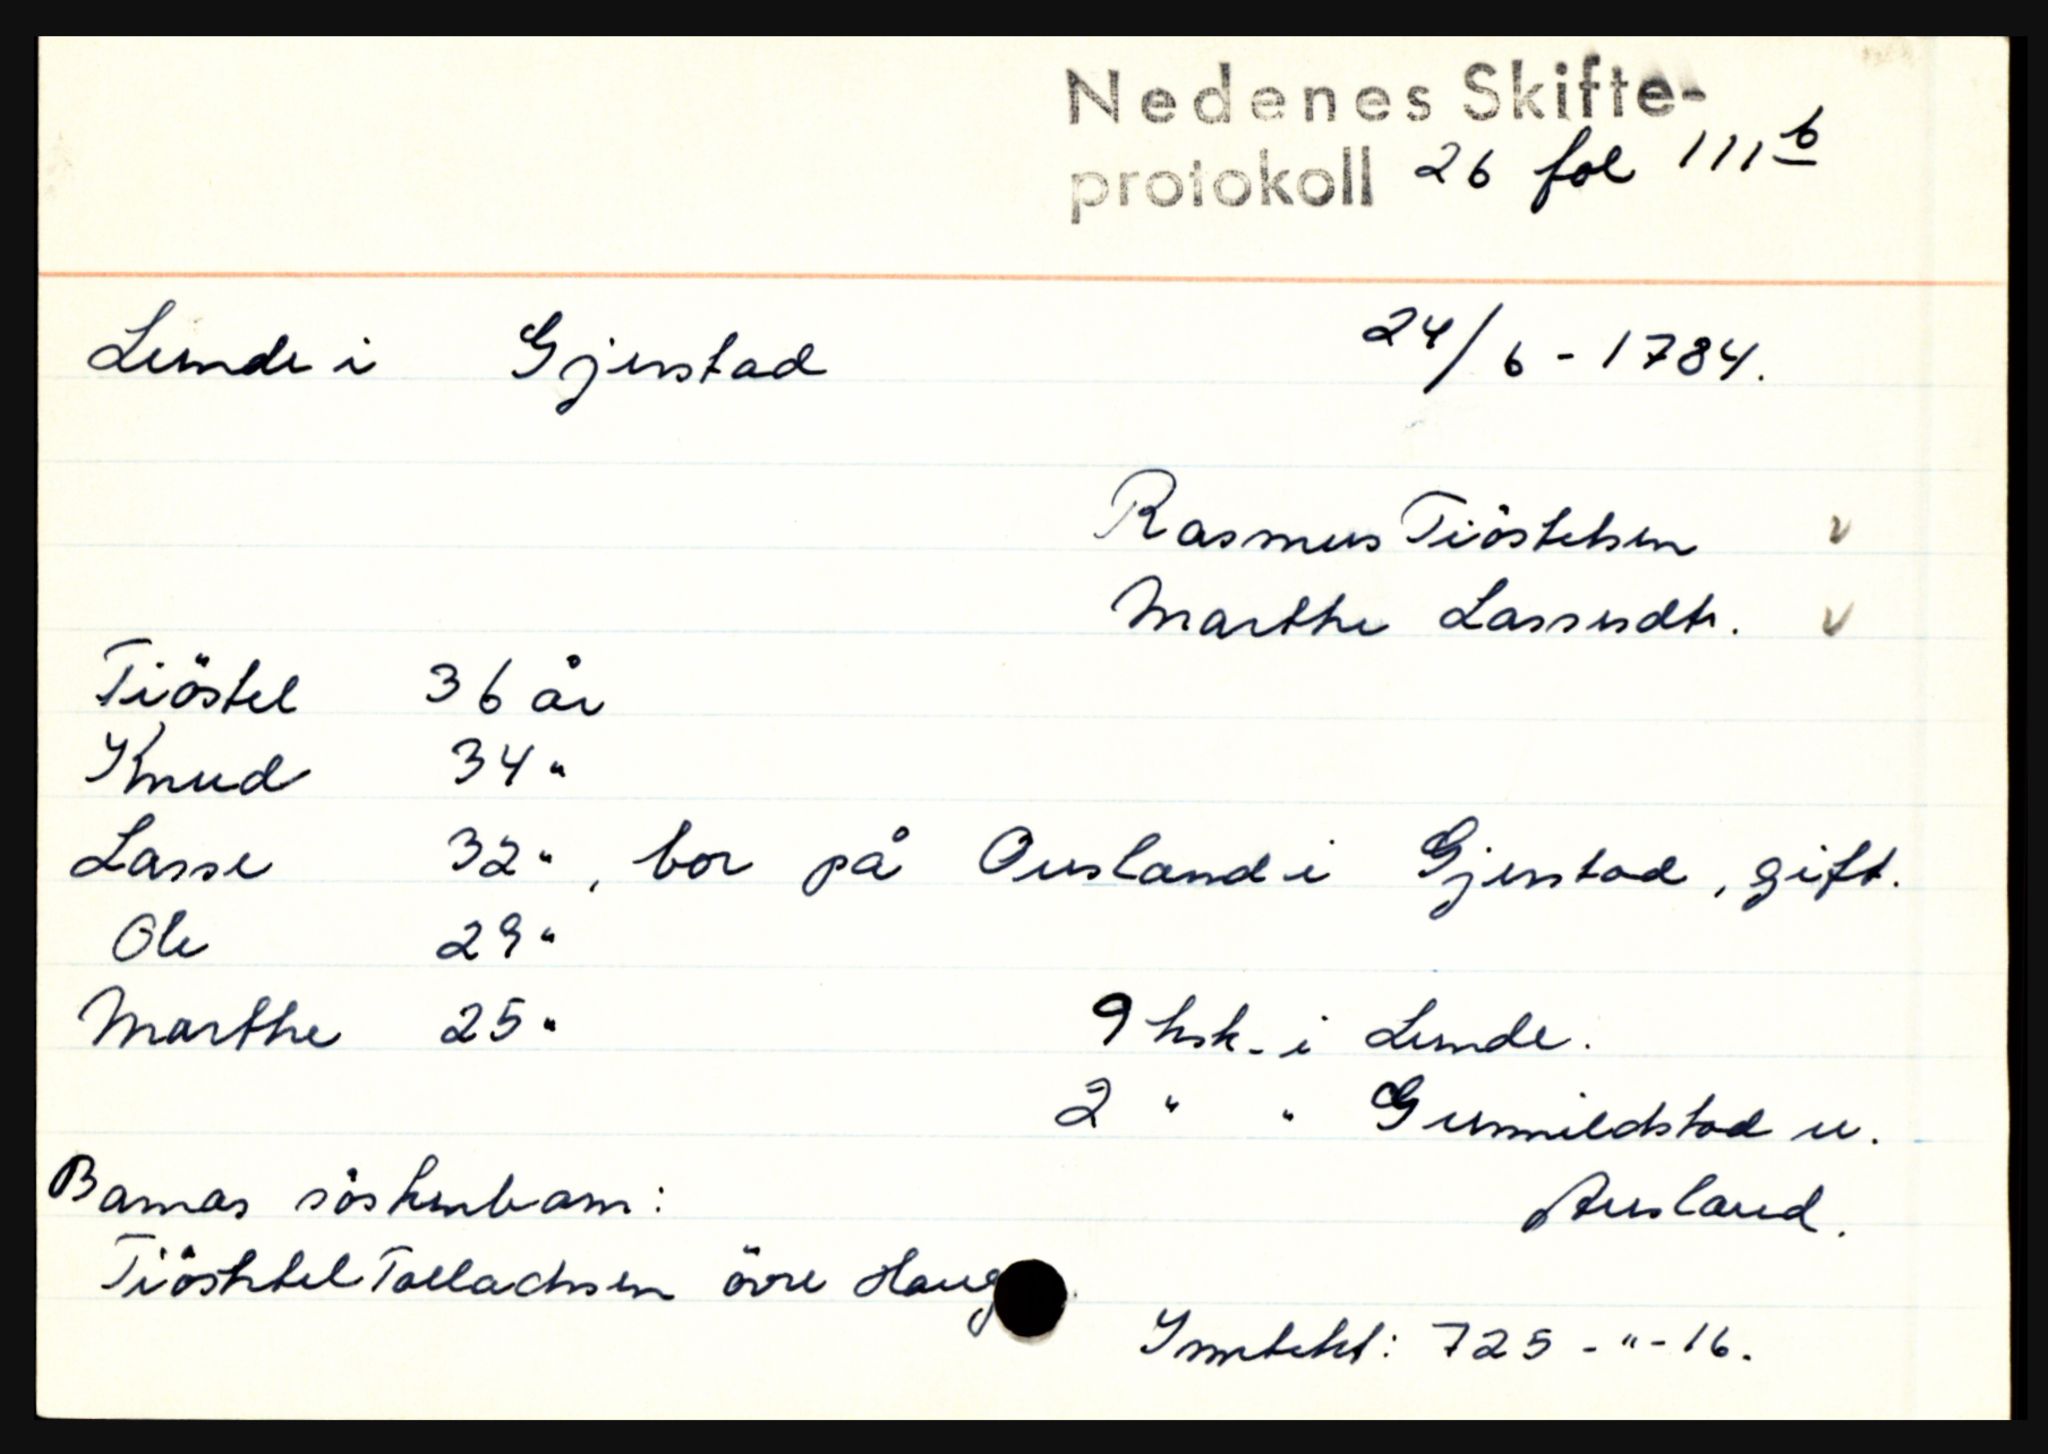 Nedenes Skifte-
protokoll 26 fol 111 b
Lunde i Gjerstad 24/6 - 1784.
Rasmus Tiöstelsen v
Marthe Lassesdtr. v
Tiöstel 36 år
Knud 34 "
Lasse 32 ", bor på Ousland i Gjerstad, gift.
Ole 29 "
Marthe 25 " 9 hsk. i Lunde.
2 " " Gunnildstad u.
Ausland.
Barnas söskenbarn:
Tiöstel Tollachsen övre Haug
Inntekt: 725 - " - 16.